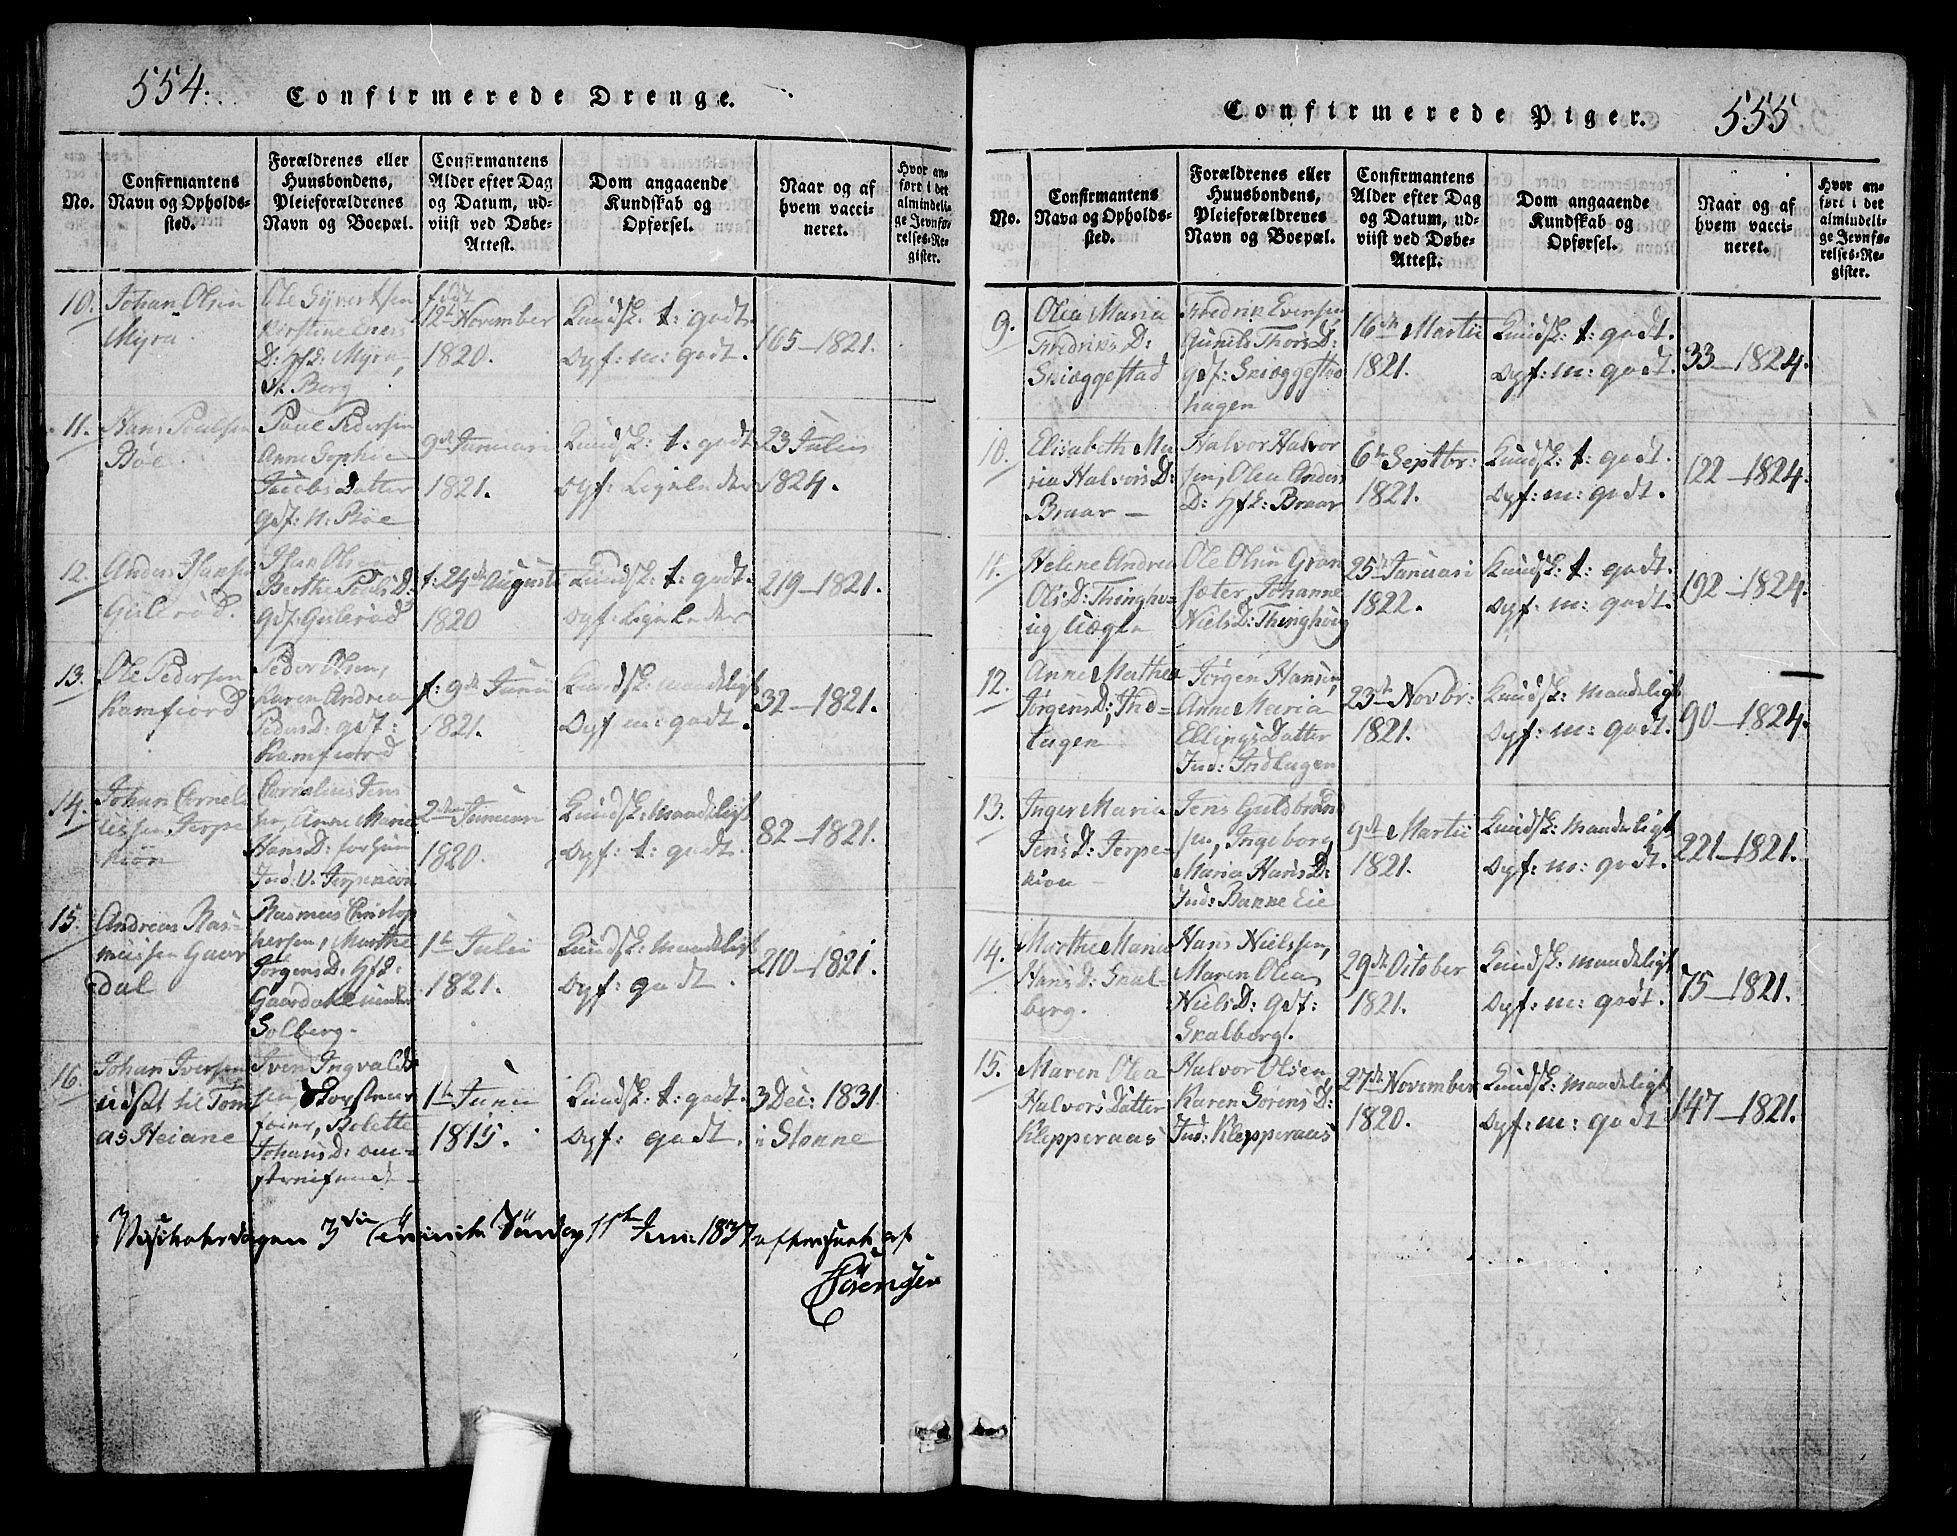 554.
Confirmerede Drenge.
No.
Confirmantens
Navn og Opholds-
sted.
Forældrenes eller
Huusbondens,
Pleieforældrenes
Navn og Boepæl.
Confirmantens
Alder efter Dag
og Datum, ud-
viist ved Døbe-
Attest.
Dom angaaende
Kundskab og
Opførsel.
Naar og af
hvem vacci-
neret.
Hvor an-
ført i det
almindeli-
ge Jevnfø-
relses-Re-
gister.
10.
Johan Olsen
Myra
Ole Syvertsen
Kirstine
D: Hfd: Myra,
Berg
født
12te November
1820.
Kundsk: t: godt.
Opf: m: godt.
165–1821.
11.
Hans Poulsen
Böe
Poul Pedersen
Anne Sophie
Jacobs Datter
Gdf: N: Böe
9de Januari
1821.
Kundsk: t: godt
Opf: Ligeledes
23 Julii
1824.
12.
Anders Hansen
Gulerød.
Hans Olsen
Berthe Pouls D:
Gdf: Gulerød
f: 24de Augusti
1820
Kundsk: t: godt.
Opf: Ligeledes
219–1821.
13.
Ole Pedersen
Ramfiord
Peder Olsen,
Karen Andrea
Peders D: gdf:
Ramfiord
f: 9de Junii
1821.
Kundsk: maadeligt
Opf m: godt.
32–1821.
14.
Johan Cornel-
iussen Torpe-
kiön
Cornelius Jens-
sen, Anne Marie
Hans D:
Ind: V. Torpekiön
2den Januari
1820.
Kundsk: maadeligt
Opf: t: godt.
82–1821.
15.
Andreas Ras-
mussen Gaar-
dal
Rasmus Christop-
hersen, Marthe
Jørgens D: Hfd:
Gaardahl under
Solberg.
1te Julii
1821.
Kundsk: maadeligt
Opf: godt.
210–1821.
16.
Johan Iversen
udsat til Tom-
as Heiane
Iven Ingvalds-
sen, Skorsteens-
feier, Bolette
Johans D: om-
streifende
1te Junii
1815.
Kundsk: t: godt.
Opf: godt.
3 Dec: 1831
i Storme
3die Trinit: Söndag 11te Juni 1837 af
Sörensen
Confirmerede Piger.
555
No.
Confirmantens
Navn og Opholds-
sted.
Forældrenes eller
Huusbondens,
Pleieforældrenes
Navn og Boepæl.
Confirmantens
Alder efter Dag
og Datum, ud-
viist ved Døbe-
Attest.
Dom angaaende
Kundskab og
Opførsel.
Naar og af
hvem vacci-
neret.
Hvor an-
ført i det
almindeli-
ge Jevnfø-
relses-Re-
gister.
9.
Olea Maria
Fredriks D:
Skiæggestad
Fredrik Evensen
Gunild Thors D:
Gdf: Skiæggestad
hagen
16de Martii
1821.
Kundsk: t: godt.
Opf: m: godt.
33–1824.
10.
Elisabeth Ma-
ria Halvors D:
Braar –
Halvor Halvor-
sen, Olea Anders
D: Hfd: Braar
6te Septbr:
1821.
Kundsk: t: godt.
Opf: m: godt.
122–1824.
11.
Helene Andrea
Ols D: Tinghö-
ug
Ole Olsen Gran-
sæter, Johanne
Niels D: Thinghöug
25de Januari
1822.
Kundsk: t: godt.
Opf: m: godt.
192–1824.
12.
Anne Mathea
Jørgens D: Ind-
lagen
Jørgen Hansen,
Anne Maria
Ellings Datter
Ind: Indlagen
23de Novbr:
1821.
Kundsk: Maadeligt
Opf: m: godt.
90–1824.
13.
Inger Maria
Jens D: Torpe-
kiön –
Jens Guldbrand-
sen, Ingeborg
Maria Hans D:
Ind: Bakke Eie
9de Martii
1821.
Kundsk: Maadeligt
Opf: m: godt.
221–1821.
14.
Marthe Maria
Hans D: Skal-
berg.
Hans Nielssen,
Maren Olea
Niels D: Gdf:
Skalberg.
29de October
1821.
Kundsk: maadeligt
Opf: m: godt.
75–1821.
15.
Maren Olea
Halvors Datter
Klepperaas
Halvor Olsen
Karen Sörens D:
Ind: Klepperaas
27de November
1820.
Kundsk: Maadeligt
Opf: m: godt
147–1821.